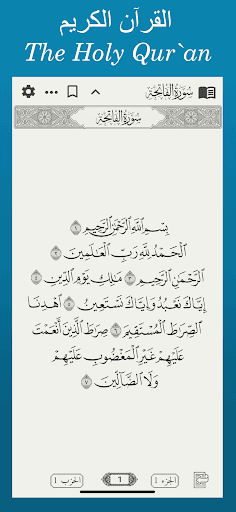 القرآن الكريم
The Holy Qur`an
سُورَةُ الْفَاتِحَةِ
سُورَةُ الْفَاتِحَةِ
بِسْمِ اللَّهِ الرَّحْمَٰنِ الرَّحِيمِ ١
الْحَمْدُ لِلَّهِ رَبِّ الْعَالَمِينَ ٢
الرَّحْمَٰنِ الرَّحِيمِ ٣ مَالِكِ يَوْمِ الدِّينِ ٤
إِيَّاكَ نَعْبُدُ وَإِيَّاكَ نَسْتَعِينُ ٥ اهْدِنَا
الصِّرَاطَ الْمُسْتَقِيمَ ٦ صِرَاطَ الَّذِينَ أَنْعَمْتَ
عَلَيْهِمْ غَيْرِ الْمَغْضُوبِ عَلَيْهِمْ
وَلَا الضَّالِّينَ ٧
الجزء 1
1
الحزب 1